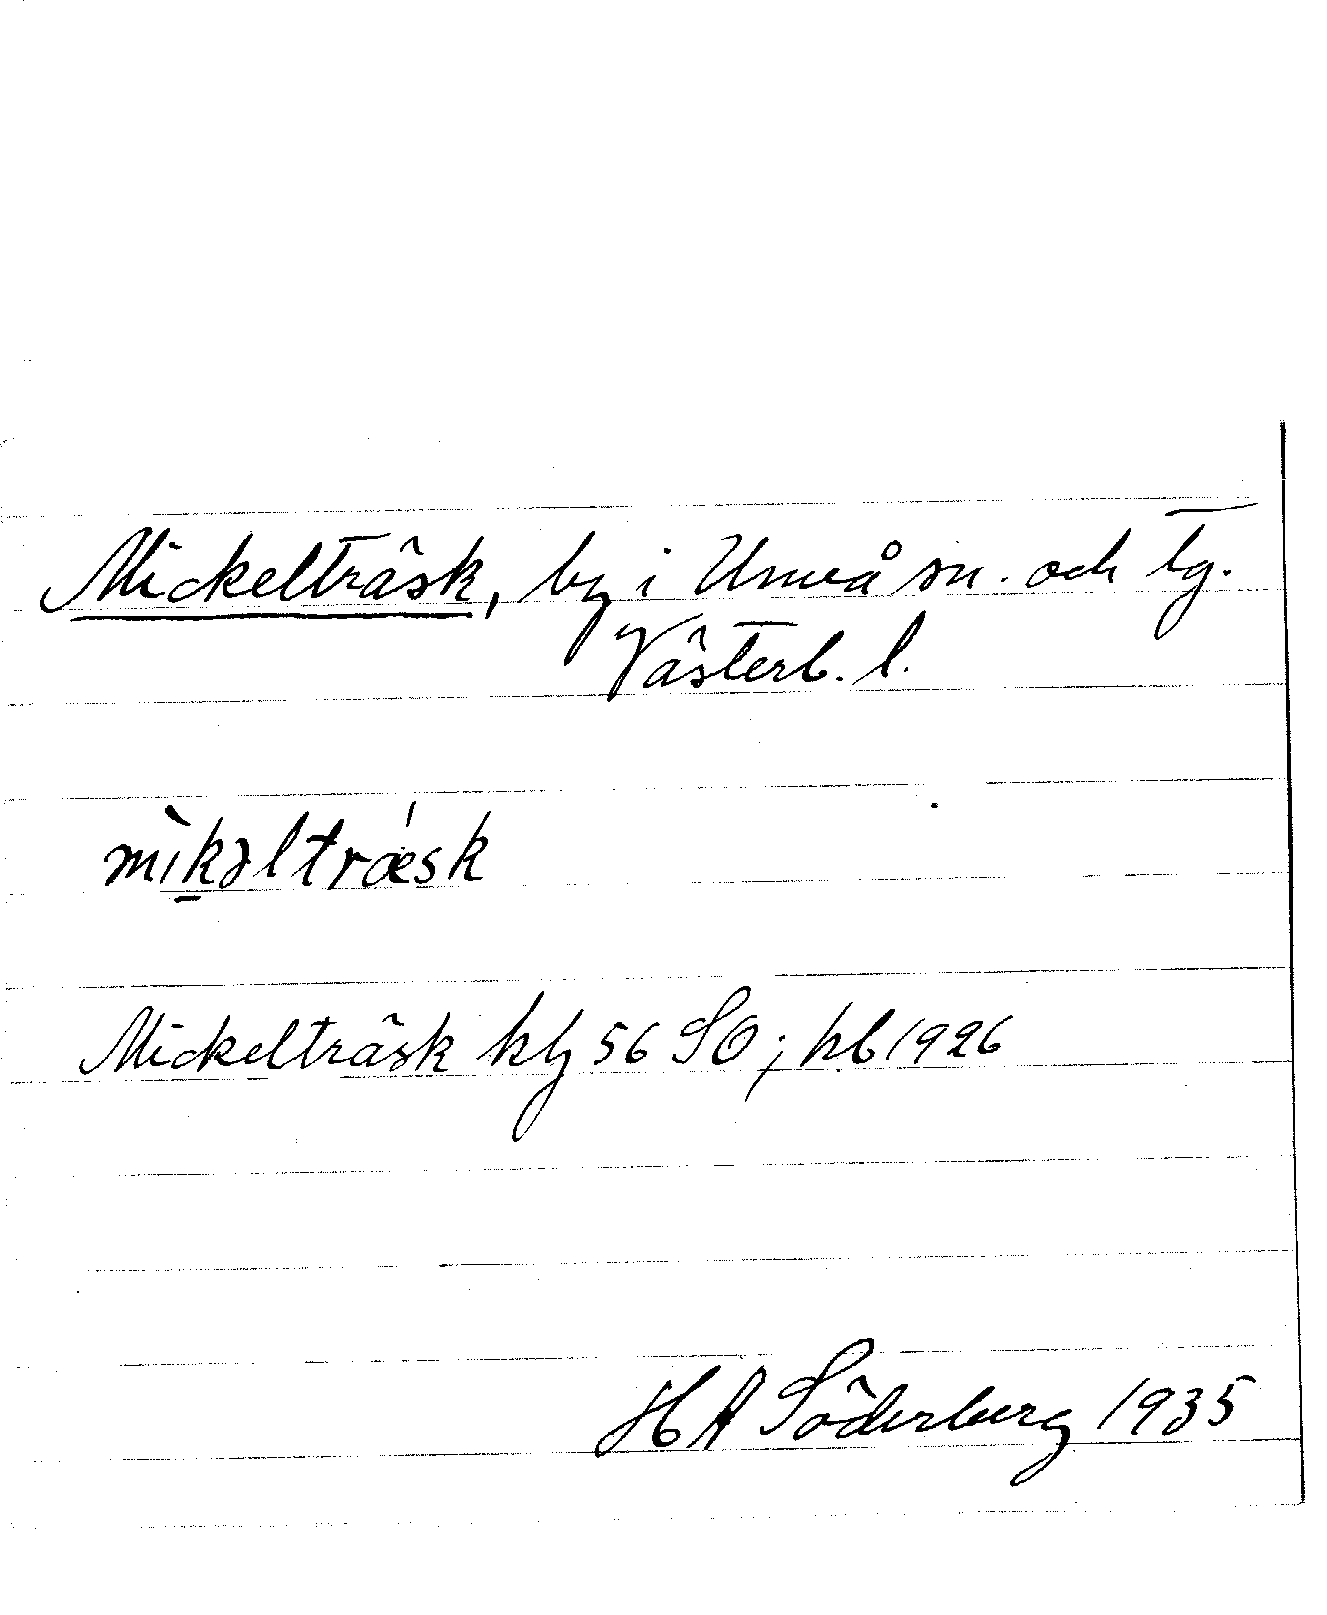 Mickelträsk, by i Umeå sn. och tg.
Västerb. l.
mìk̠əltrǽsk
Mickelträsk kbl 56 SO; hb 1926
H A Söderberg 1935